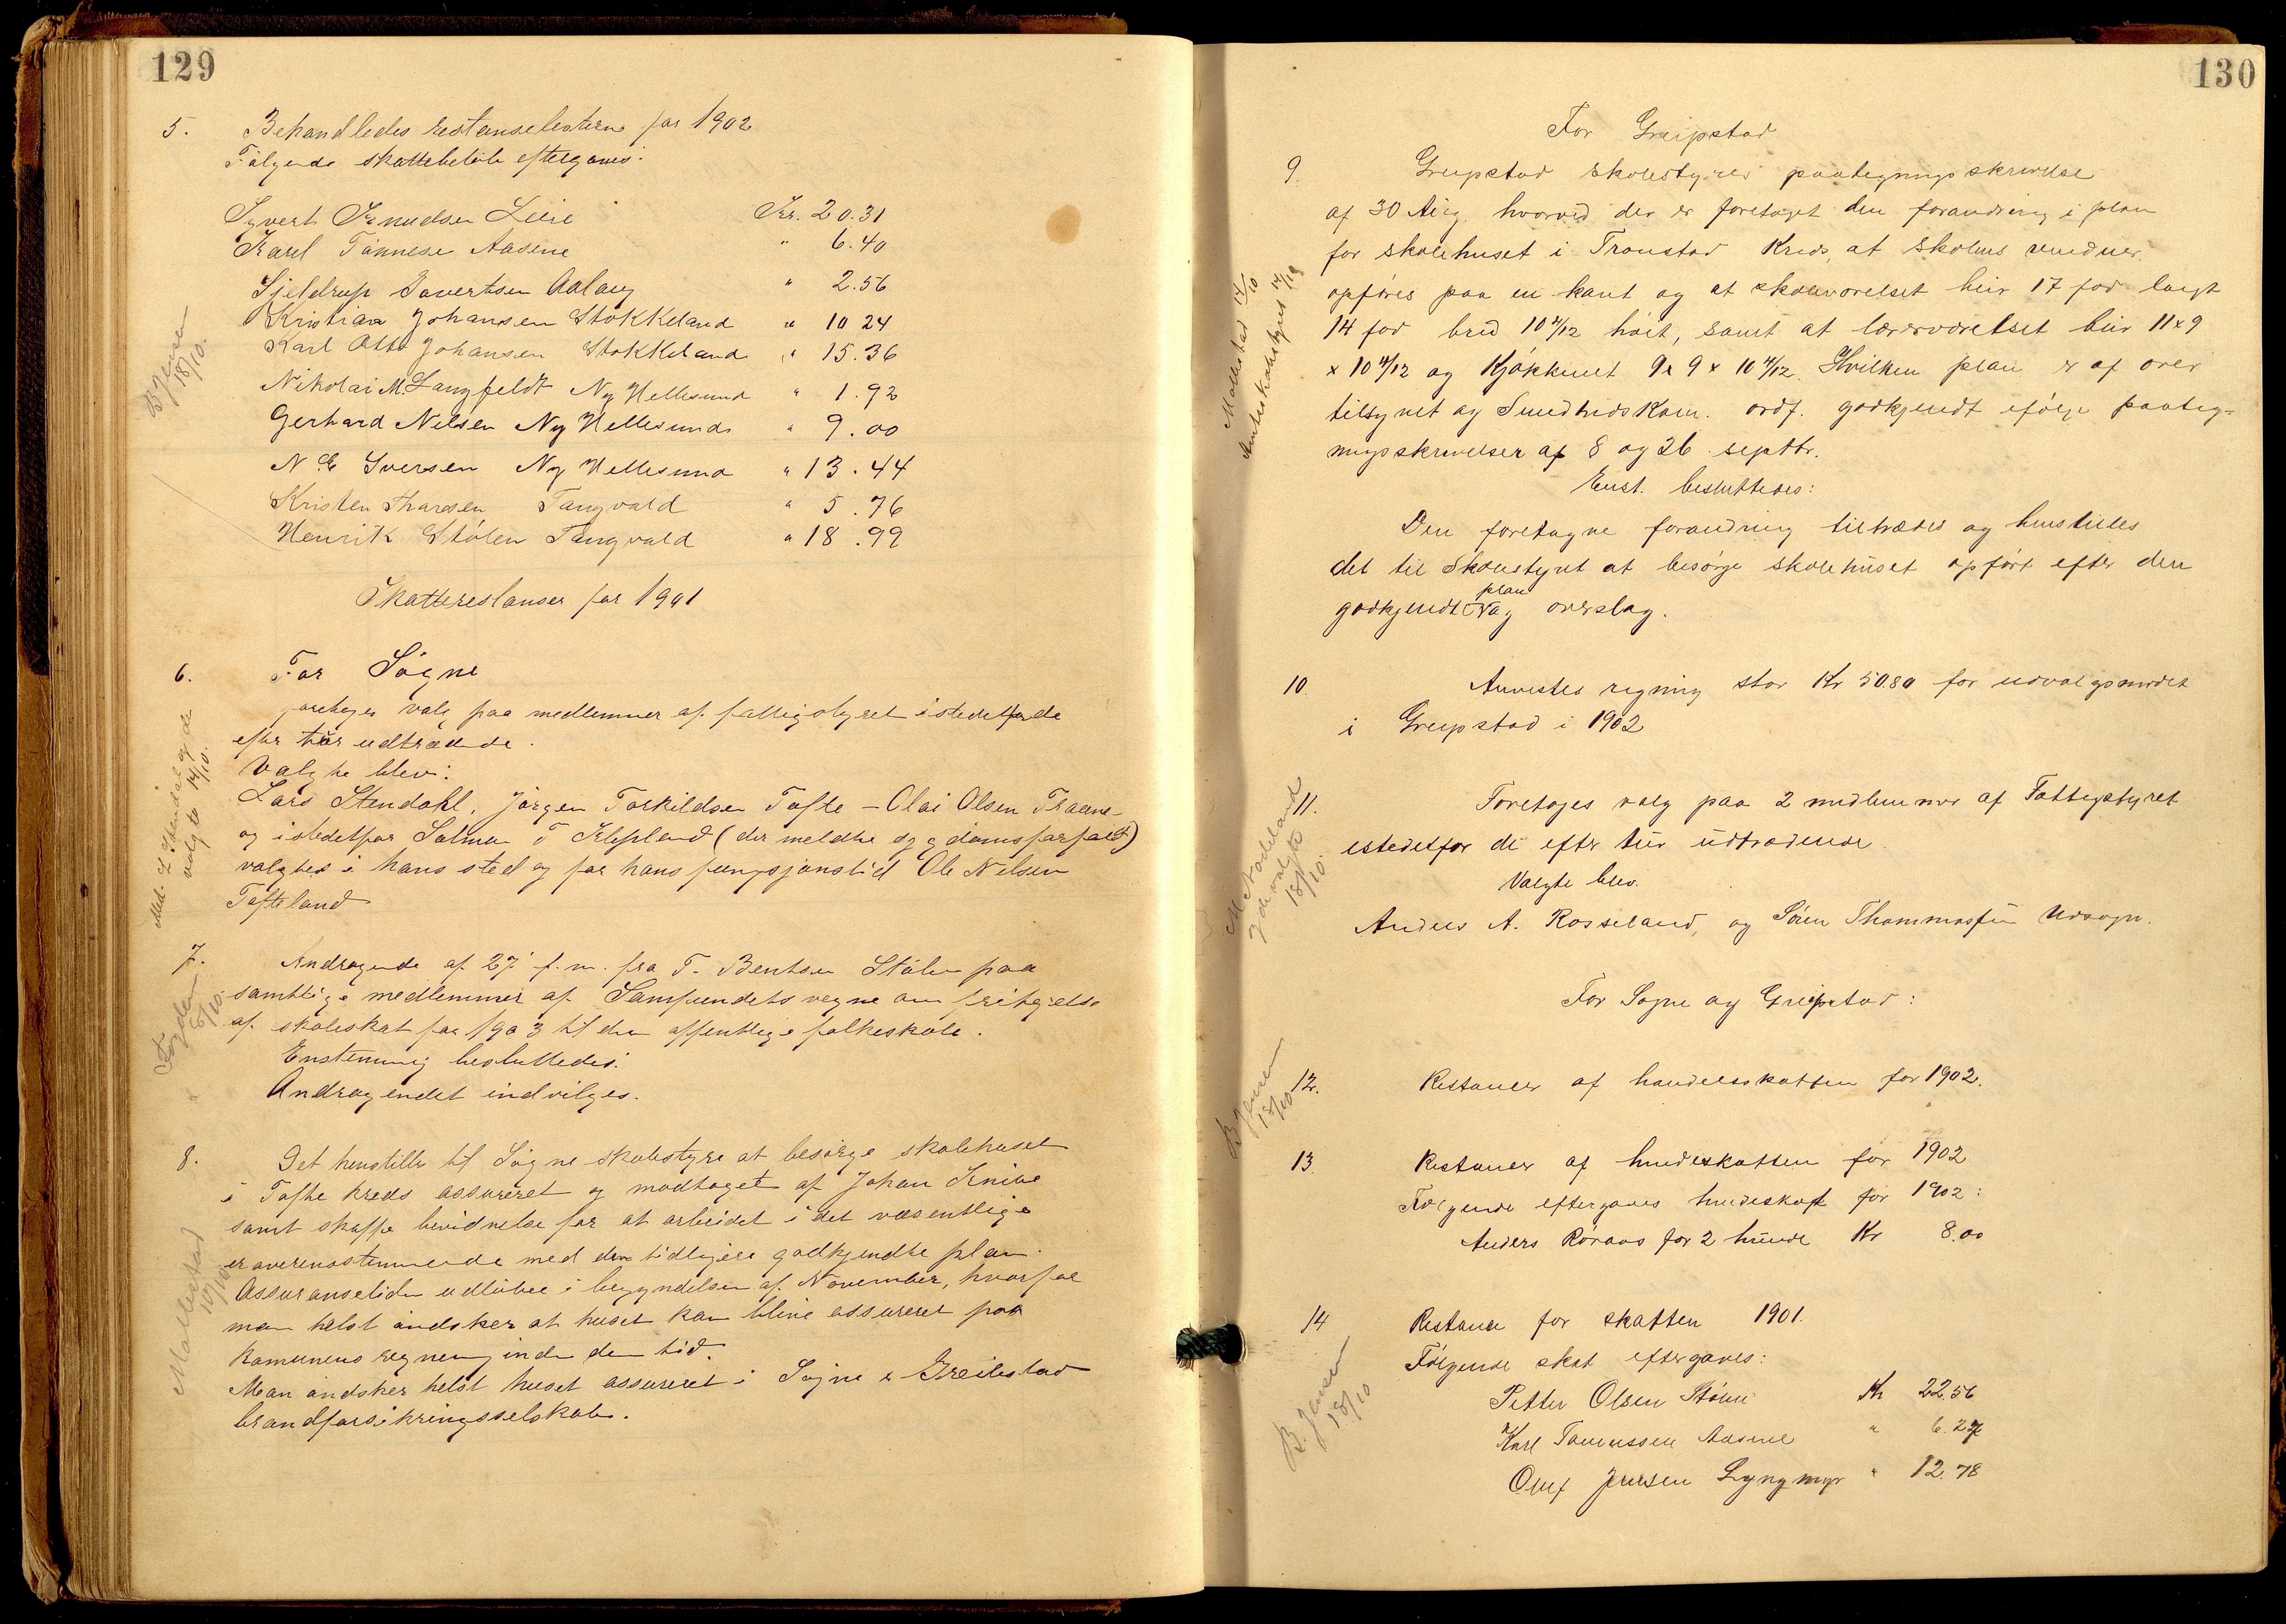 129
5. Behandledes restanselisterne for 1902
Følgende skattebeløb eftergaves:
Syvert Knudsen Leire Kr. 20.31
Karel Tønnese Aasene " 6.40
Sjeldrup Tavertsen " 2.56
Kristian Johansen Stokkeland " 10 24
Karl Otto Johansen Stokkeland " 15.36
Nikolai M. Langfeldt Ny Hellesund " 1.92
Gerhard Nilsen Ny Hellesund " 9.00
N E Iversen Ny Hellesund " 13.44
Kristen Tangvald " 5.76
Henrik Stølen Tangvald " 18.99
B Jensen
18/10.
Skatterestanser for 1901
6. For Søgne
foretages valg paa medlemmer af fattigstyret istedetfor de
efter tur udtrædende.
Valgte blev:
Lars Stendahl, Jørgen Torkildsen Tofte - Olai Olsen Traane-
og istedetfor Salmen T Klepland (der meldte sygdomsforfald)
valgtes i hans sted og for hans fungsjonstid Ole Nilsen
Tofteland
Med. L Stendal og de
valgte 14/10.
7. Andragende af 27 f.m. fra T. Bentsen Stølen paa
samtlige medlemmer af Samfundets vegne om fritagelse
af skoleskat for 1903 til den offentlige folkeskole.
Enstemmig besluttedes:
Andragendet indvilges.
Fogden
8/10.
8. Det henstilles til Søgne skolestyre at besørge skolehuset
i Tofte kreds assureret og modtaget af Johan Knibe
samt skaffe bevidnelse for at arbeidet i det væsentlige
er overensstemmende med den tidligere godkjendte plan.
Assuransetiden udløber i begyndelsen af November, hvorfor
man helst ønsker at huset kan blive assureret paa
kommunens regning inden den tid.
Man ønsker helst huset assureret i Søgne & Greibstad
brandforsikringsselskab.
Mollestad
10/10
130
For Greipstad
9. Greipstad skolestyres paategningsskrivelse
af 30 Aug. hvorved der er foretaget den forandring i plan
for skolehuset i Tronstad Kreds, at skolens vinduer
opføres paa en kant og at skoleværelset blir 17 fod langt
14 fod bred 10 4/12 høit, samt at lærerværelset blir 11 x 9
x 10 4/12 og Kjøkkenet 9 x 9 x 10 4/12. Hvilken plan er af over
tilsynet og Sundhedskom. ordf. godkjendt ifølge paateg-
ningsskrivelser af 8 og 26 septbr.
Enst. besluttedes:
Den foretagne forandring tiltrædes og henstilles
det til Skolestyret at besørge skolehuset opført efter den
godkjendte plan og overslag.
Mollestad 17/10
Amtsskolestyret 17/10
10. Anvistes regning stor Kr 50.80 for udvalgsmødet
i Greipstad i 1902
11. Foretages valg paa 2 medlemmer af Fattigstyret
istedetfor de efter tur udtrædende
Valgte blev.
Anders A. Rosseland, og Søren Thommassen Udsogn.
M Nodeland
og de valgte
18/10.
For Sogne og Greipstad:
12. Restancer af handelsskatten for 1902.
B Jensen
18/10
13. Restancer af hundeskatten for 1902
Følgende eftergaves hundeskat for 1902:
Anders Røraas for 2 hunde Kr 8.00
14 Restancer for skatten 1901.
Følgende skat eftergaves:
Petter Olsen Stølen Kr 22.56
Karl Tønnessen Aasene " 6.27
Oluf Jensen Lyngmyr " 12.78
B. Jensen
18/10